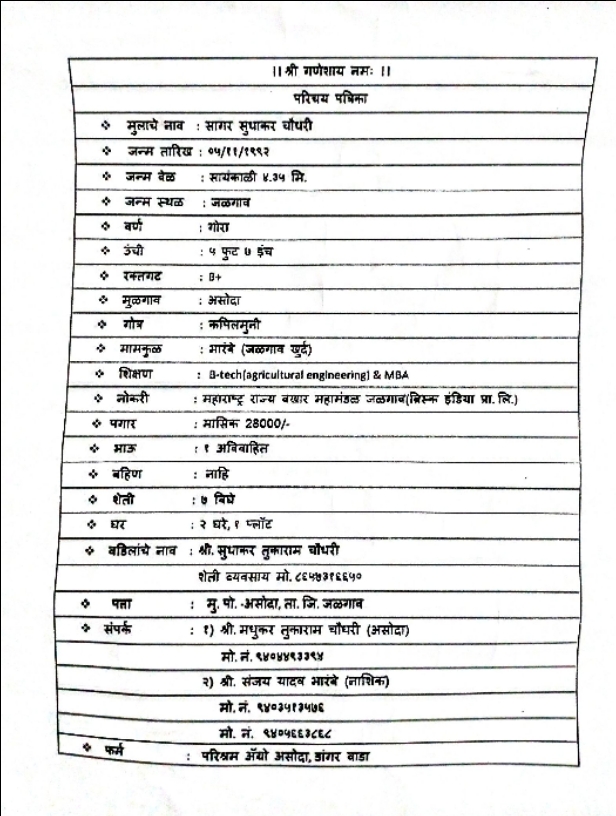 ।। श्री गणेशाय नमः ।।
परिचय पत्रिका
❖ मुलाचे नाव : सागर सुधाकर चौधरी
❖ जन्म तारिख : ०५/११/१९९२
❖ जन्म वेळ : सायंकाळी ४.३५ मि.
❖ जन्म स्थळ : जळगाव
❖ वर्ण : गोरा
❖ उंची : ५ फुट ७ इंच
❖ रक्तगट : B+
❖ मुळगाव : असोदा
❖ गोत्र : कपिलमुनी
❖ मामकुळ : भारंबे (जळगाव खुर्द)
❖ शिक्षण : B-tech(agricultural engineering) & MBA
❖ नोकरी : महाराष्ट्र राज्य वखार महामंडळ जळगाव(ब्रिस्क इंडिया प्रा. लि.)
❖ पगार : मासिक 28000/-
❖ भाऊ : १ अविवाहित
❖ बहिण : नाहि
❖ शेती : ७ बिघे
❖ घर : २ घरे, १ प्लॉट
❖ वडिलांचे नाव : श्री. सुधाकर तुकाराम चौधरी
शेती व्यवसाय मो. ८६५७३१६६५०
❖ पत्ता : मु. पो. -असोदा, ता. जि. जळगाव
❖ संपर्क : १) श्री. मधुकर तुकाराम चौधरी (असोदा)
मो. नं. ९४०४४९३३९४
२) श्री. संजय यादव भारंबे (नाशिक)
मो. नं. ९४०३५१३५७६
मो. नं. ९४०५६६३८६८
❖ फर्म : परिश्रम ॲग्रो असोदा, डांगर वाडा